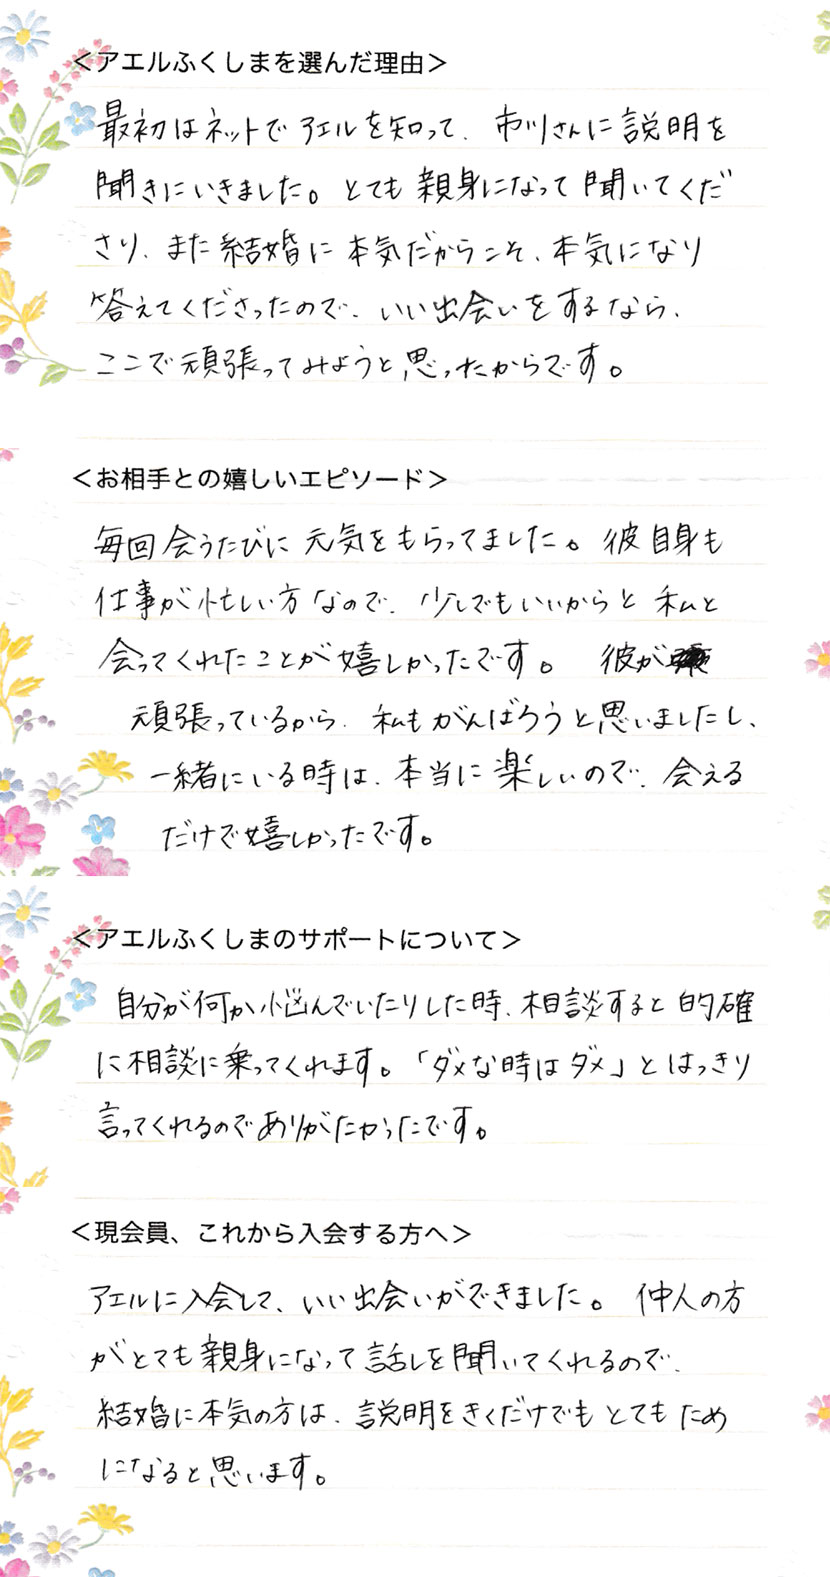 ＜アエルふくしまを選んだ理由＞
最初はネットでアエルを知って、市川さんに説明を
聞きにいきました。とても親身になって聞いてくだ
さり、また結婚に本気だからこそ、本気になり
答えてくださったので、いい出会いをするなら、
ここで頑張ってみようと思ったからです。
＜お相手との嬉しいエピソード＞
毎回会うたびに元気をもらってました。彼自身も
仕事が忙しい方なので、少しでもいいからと私と
会ってくれたことが嬉しかったです。彼が
頑張っているから、私もがんばろうと思いましたし、
一緒にいる時は、本当に楽しいので、会える
だけで嬉しかったです。
＜アエルふくしまのサポートについて＞
自分が何か悩んでいたりした時、相談すると的確
に相談に乗ってくれます。「ダメな時はダメ」とはっきり
言ってくれるのでありがたかったです。
＜現会員、これから入会する方へ＞
アエルに入会して、いい出会いができました。仲人の方
がとても親身になって話しを聞いてくれるので、
結婚に本気の方は、説明をきくだけでもとてもため
になると思います。